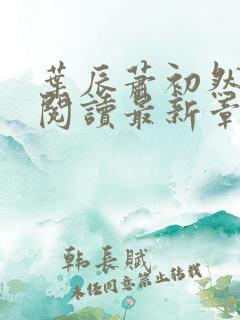 葉辰蕭初然
閱讀最新章
韩長賦
未任同意禁止转载